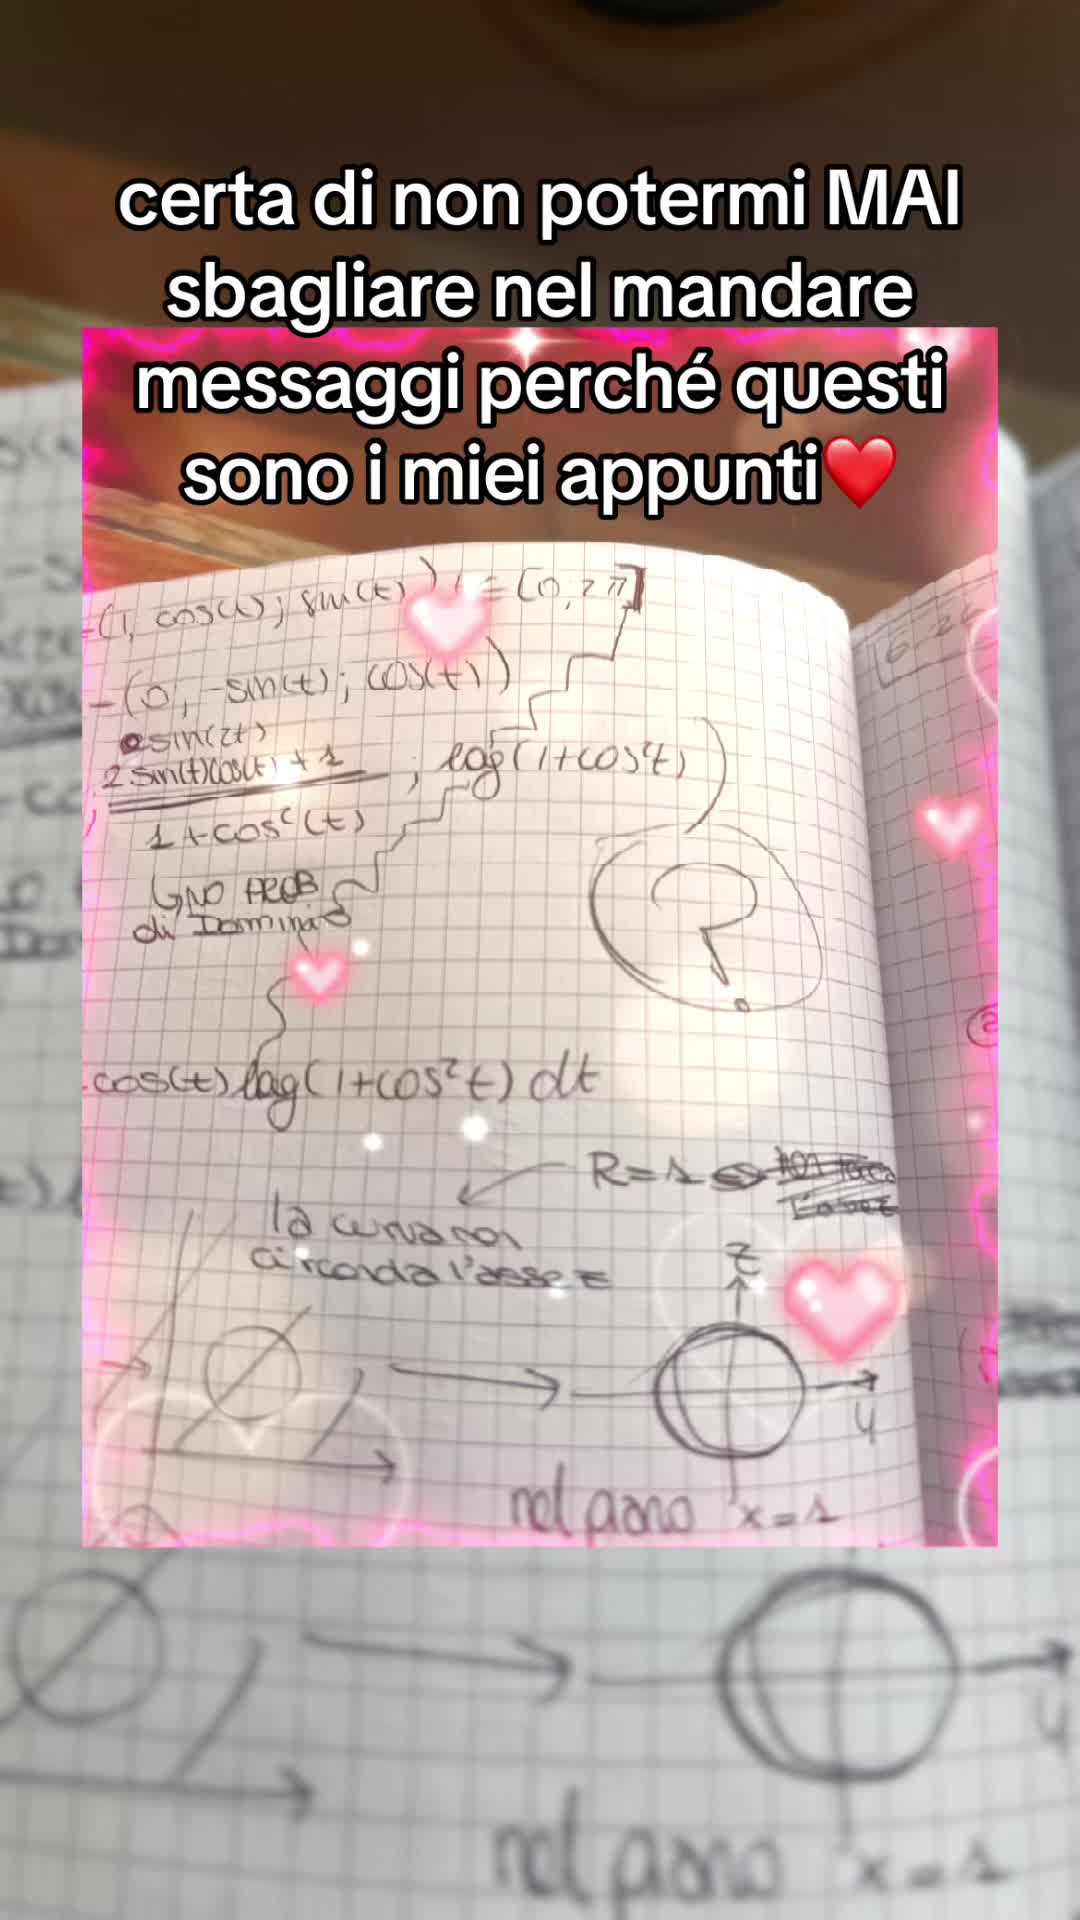 certa di non potermi MAI
sbagliare nel mandare
messaggi perché questi
sono i miei appunti❤️
(1, cos(t); sin(t)) [0, 2π]
-(0, -sin(t); cos(t))
sin(2t)
2 sin(t)cos(t) + 1 ; log(1+cos²t)
1+cos²(t)
NO PROB
di Dominio
?
cos(t) log(1+cos²t) dt
R=1
la curva non
circonda l'asse z
z
y
nel piano x=1
y
nel piano x=1